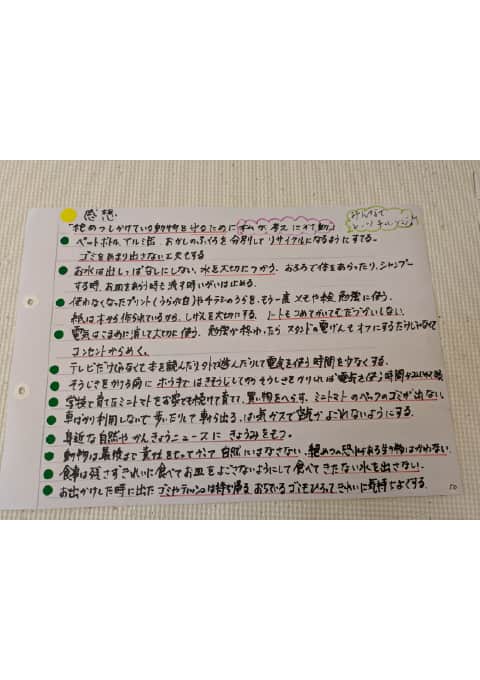 感想
「絶めつしかけている動物を守るために私が考えた行動」
みんなで
ペットボトル、アルミ缶、おかしのふくろを分別してリサイクルになるようにすてる。
ゴミをあまり出さない工夫もする
お水は出しっぱなしにしない、水を大切につかう。おふろで体をあらったり、シャンプー
する時、お皿をあらう時も流す時いがいは止める。
使わなくなったプリント(うらが白)やチラシのうらを、もう一度メモや検勉強に使う。
紙は木から作られているから、しげんを大切にする、ノートもつめてかいてむだづかいしない。
電気はこまめに消して大切に使う、勉強が終わったらスタンドの電げんをオフにするだけじゃなくて
コンセントからぬく。
テレビだけじゃなくて本を読んだり外で遊んだりして電気を使う時間を少なくする。
そうじきをかける前にホウキではきそうじしてからそうじきをかければ電気を使う時間が
学校で育てたミニトマトをお家でも続けて育て、買い物をへらす。ミニトマトのパックのゴミが出ない
車ばかり利用しないで歩いたりして車から出る、はい気ガスで空気がよごれないようにする。
身近な自然やかんきょうニュースにきょうみをもつ。
動物は最後まで責任をもってかって自然にはなさない、絶めつの恐れがある生き物はかわない。
食事は残さずきれいに食べてお皿をよごさないようにして食べてきたない水を出さない。
お出かけした時に出たゴミやティッシュは持ち帰る おちているゴミもひろってきれいに気持ちよくする。
50